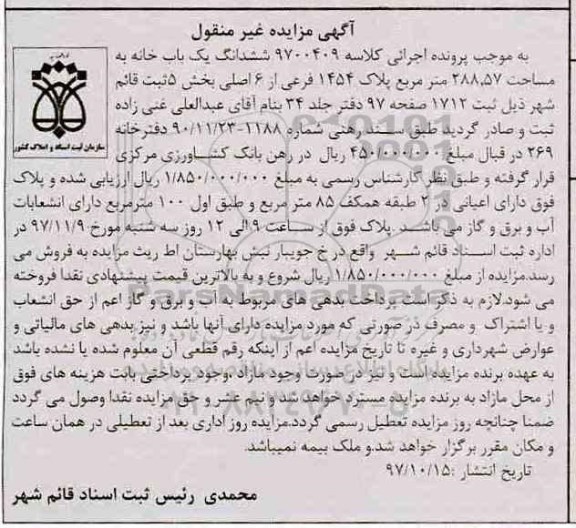 آگهی مزایده غیر منقول
به موجب پرونده اجرائی کلاسه ۹۷۰۰۴۰۹ ششدانگ یک باب خانه به
مساحت ۲۸۸,۵۷ متر مربع پلاک ۱۴۵۴ فرعی از ۶ اصلی بخش ۵ ثبت قائم
شهر ذیل ثبت ۱۷۱۲ صفحه ۹۷ دفتر جلد ۳۴ بنام آقای عبدالعلی غنی زاده
ثبت و صادر گردید طبق سند رهنی شماره ۱۱۸۸-۹۰/۱۱/۲۳ دفترخانه
۲۶۹ در قبال مبلغ ۴۵۰/۰۰۰/۰۰۰ ریال در رهن بانک کشاورزی مرکزی
قرار گرفته و طبق نظر کارشناس رسمی به مبلغ ۱/۸۵۰/۰۰۰/۰۰۰ ریال ارزیابی شده و پلاک
فوق دارای اعیانی در ۲ طبقه همکف ۸۵ متر مربع و طبق اول ۱۰۰ مترمربع دارای انشعابات
آب و برق و گاز می باشد. پلاک فوق از ساعت ۹ الی ۱۲ روز سه شنبه مورخ ۹۷/۱۱/۹ در
اداره ثبت اسناد قائم شهر واقع در خ جویبار نبش بهارستان اط ریث مزایده به فروش می
رسد.مزایده از مبلغ ۱/۸۵۰/۰۰۰/۰۰۰ ریال شروع و به بالاترین قیمت پیشنهادی نقدا فروخته
می شود.لازم به ذکر است پرداخت بدهی های مربوط به آب و برق و گاز اعم از حق انشعاب
و یا اشتراک و مصرف در صورتی که مورد مزایده دارای آنها باشد و نیز بدهی های مالیاتی و
عوارض شهرداری و غیره تا تاریخ مزایده اعم از اینکه رقم قطعی آن معلوم شده یا نشده باشد
به عهده برنده مزایده است و نیز در صورت وجود مازاد ،وجود پرداختی بابت هزینه های فوق
از محل مازاد به برنده مزایده مسترد خواهد شد و نیم عشر و حق مزایده نقدا وصول می گردد
ضمنا چنانچه روز مزایده تعطیل رسمی گردد.مزایده روز اداری بعد از تعطیلی در همان ساعت
و مکان مقرر برگزار خواهد شد.و ملک بیمه نمیباشد.
تاریخ انتشار :۹۷/۱۰/۱۵
محمدی رئیس ثبت اسناد قائم شهر
سازمان ثبت اسناد و املاک کشور
ParsNamadData